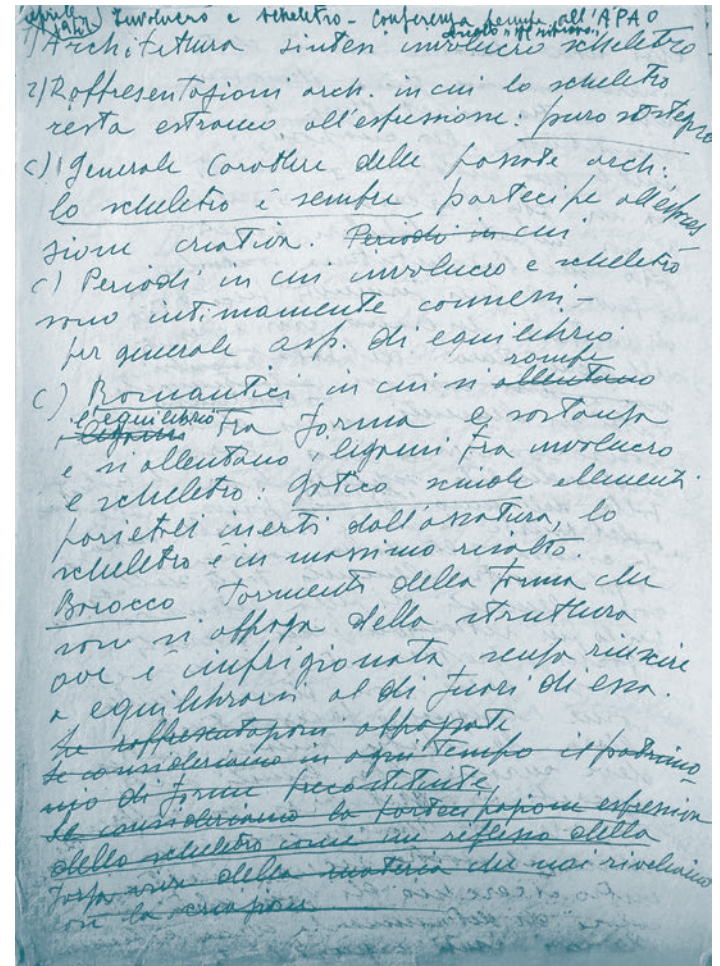 aprile 1947 Involucro e scheletro - Conferenza tenuta all'APAO
1) Architettura sintesi involucro scheletro
2) Rappresentazioni arch. in cui lo scheletro
resta estraneo all'espressione: puro sostegno
c) Generale carattere delle passate arch:
lo scheletro è sempre partecipe all'espres
sione creativa. Periodi in cui
c) Periodi in cui involucro e scheletro
sono intimamente connessi -
per generale asp. di equilibrio
rompe
c) Romantici in cui si allentano
l'equilibrio
i legami fra forma e sostanza
e si allentano i legami fra involucro
e scheletro: gotico scinde elementi
parietali inerti dall'ossatura, lo
scheletro è in massimo risalto.
Barocco tormento della forma che
non si appaga della struttura
ove è imprigionata, senza riuscire
a equilibrarsi al di fuori di essa.
Le rappresentazioni appagate
Se consideriamo in ogni tempo il patrimo-
nio di forme precostituite,
Se consideriamo la partecipazione espressiva
dello scheletro come un riflesso della
forza viva della materia che noi riveliamo
con la creazione